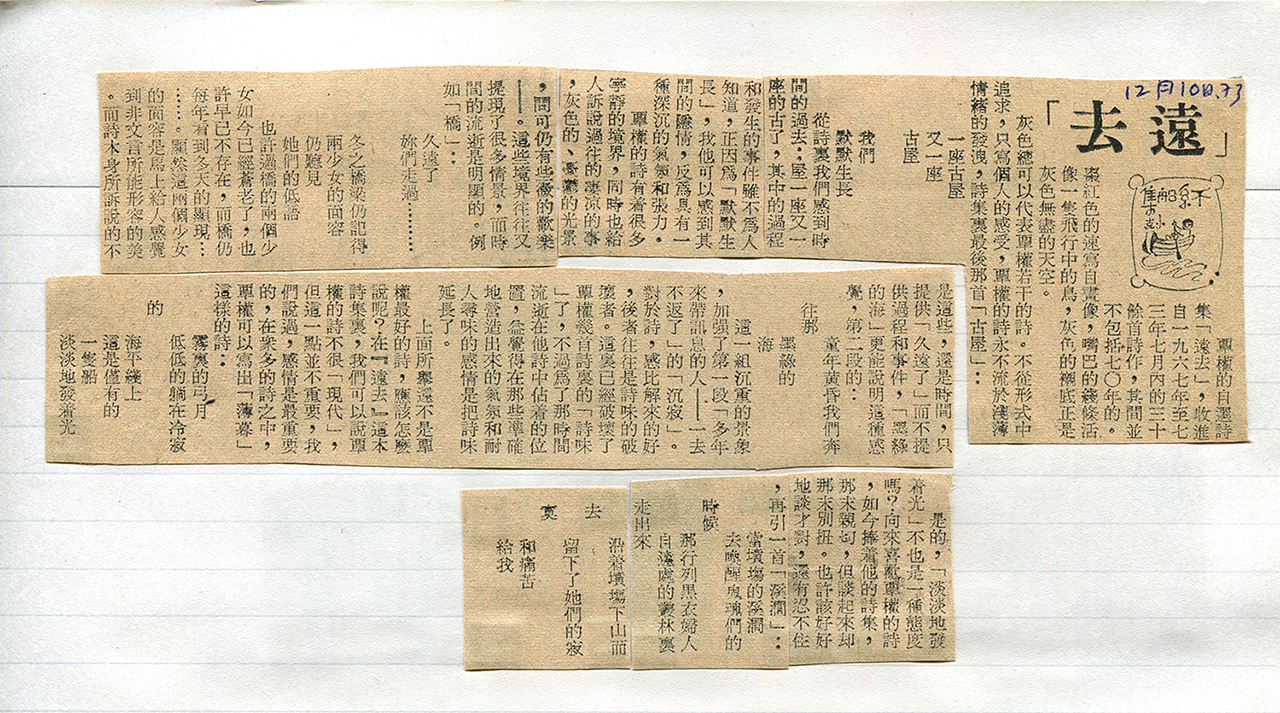 12月10日.73
「遠去」
覃權的自選詩
集「遠去」,收進
自一九六七年至七
三年七月內的三十
餘首詩作,其間並
不包括七〇年的。
棗紅色的速寫自畫像,嘴巴的綫條活
像一隻飛行中的鳥,灰色的襯底正是
灰色無盡的天空。
灰色總可以代表覃權若干的詩。不從形式中
追求,只寫個人的感受,覃權的詩永不流於淺薄
情緒的發洩,詩集裏最後那首「古屋」:
一座古屋
又一座
古屋
我們
默默生長
從詩裏我們感到時
間的過去:屋一座又一
座的古了,其中的過程
和發生的事件雖不爲人
知道,正因爲「默默生
長」,我他可以感到其
間的隱情,反爲具有一
種深沉的氣氛和張力。
覃權的詩有着很多
寧靜的境界,同時也給
人訴說過往的凄涼的事
,灰色的、的光景
,間可仍有些微的歡樂
——。這些境界往往又
提現了很多情景,而時
間的流逝是明顯的。例
如「橋」:
久遠了
妳們走過………
冬之橋梁仍記得
兩少女的面容
仍聽見
她們的低語
也許過橋的兩個少
女如今已經蒼老了,也
許早已不存在,而橋仍
每年看到冬天的顯現…
……。顯然這兩個少女
的面容是馬上給人感覺
到非文言所能形容的美
。而詩本身所訴說的不
是這些,還是時間,只
提供「久遠了」而不提
供過程和事件,「墨綠
的海」更能說明這種感
覺,第二段的:
童年黃昏我們奔
往那
墨綠的
海
這一組沉重的景象
,加强了第一段「多年
來帶訊息的人——一去
不返了」的「沉寂」。
對於詩,感比解來的好
,後者往往是詩味的破
壞者。這裏已經破壞了
覃權幾首詩裏的「詩味
」了,不過爲了那時間
流逝在他詩中佔着的位
置,益覺得在那些準確
地營造出來的氣氛和耐
人尋味的感情是把詩味
延長了。
上面所舉還不是覃
權最好的詩,應該怎麽
說呢?在『遠去』這本
詩集裏,我們可以說覃
權的詩不很「現代」,
但這一點並不重要,我
們說過,感情是最重要
的,在衆多的詩之中,
覃權可以寫出「薄暮」
這樣的詩:
霧裏的弓月
低低的躺在冷寂
的
海平綫上
這是僅有的
一隻船
淡淡地發着光
是的,「淡淡地發
着光」不也是一種態度
嗎?向來喜歡覃權的詩
,如今捧着他的詩集,
那末親切,但談起來却
那末别扭。也許該好好
地談才對,還有忍不住
,再引一首「溪澗」:
當墳塲的溪澗
去喚醒玫瑰們的
時候
那行列黑衣婦人
自遠處的叢林裏
走出來
沿着墳塲下山而
去
留下了她們的寂
寞
和痛苦
給我